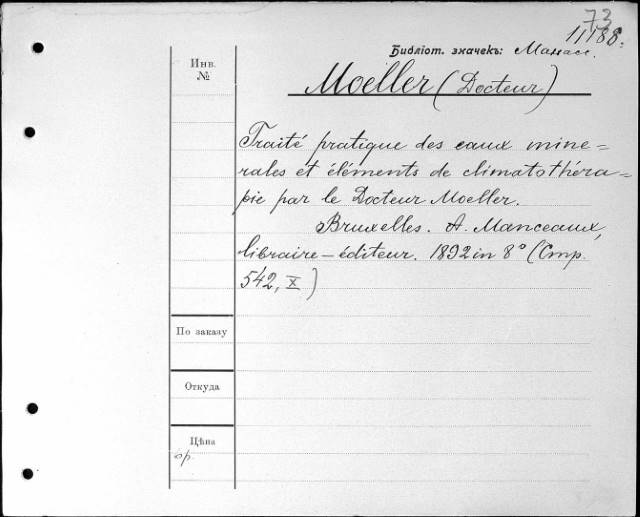 73
11188.
Библіот. значекъ: Манасс.
Инв.
№
Moeller (Docteur)
Traité pratique des eaux mine=
rales et éléments de climatothéra=
pie par le Docteur Moeller.
Bruxelles. A. Manceaux,
libraire-éditeur. 1892 in 8° (Стр.
542, X)
По заказу
Откуда
Цѣна
бр.